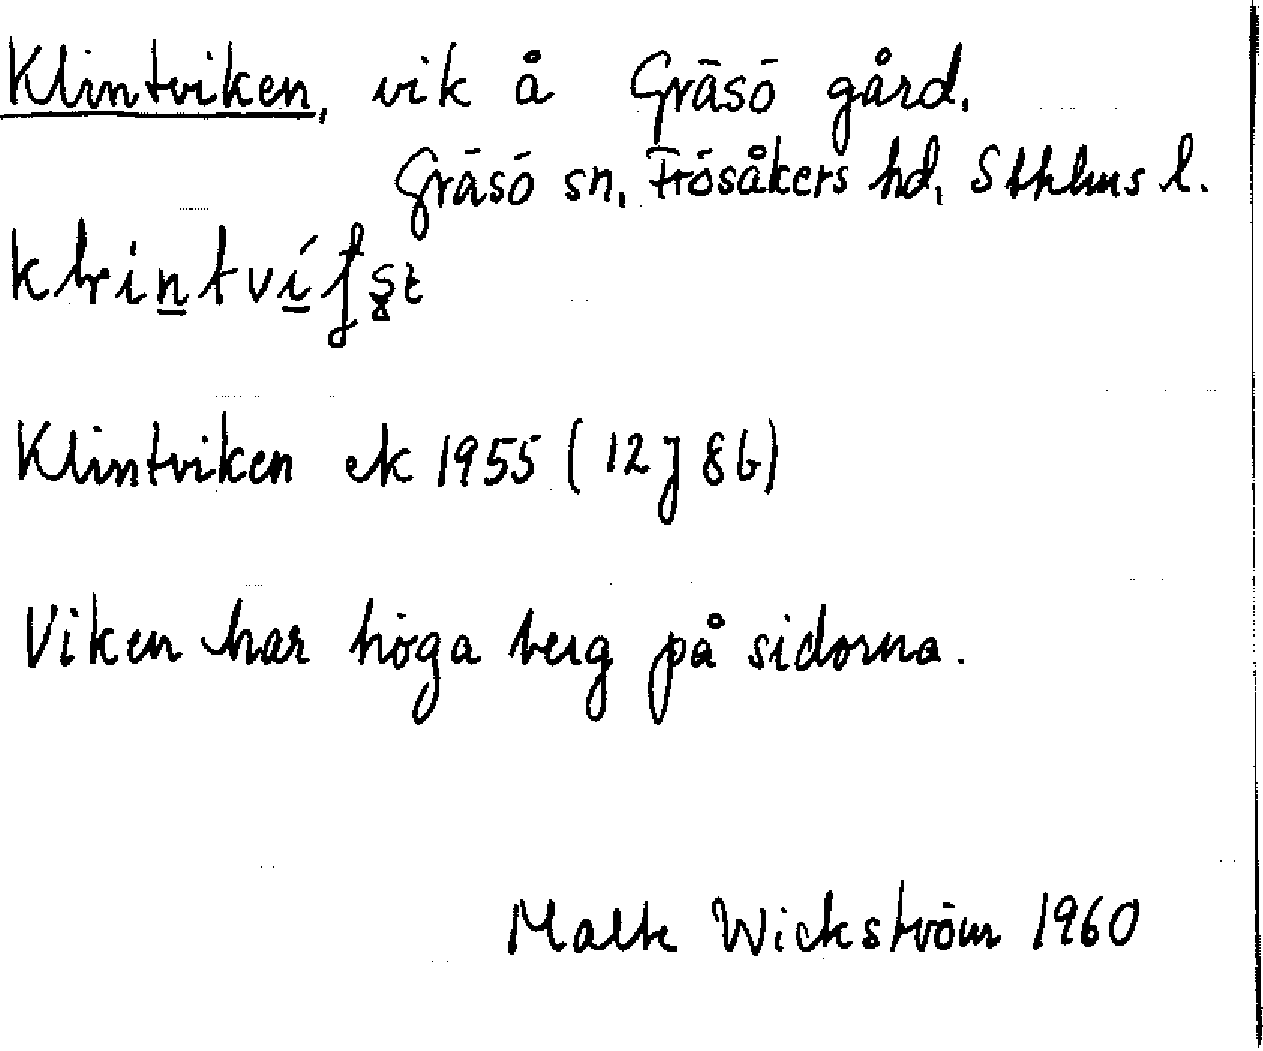 Klintviken, vik å Gräsö gård.
Gräsö sn, Frösåkers hd, Sthlms l.
Klintviken ek 1955 (12J 8b)
Viken har höga berg på sidorna.
Malte Wickström 1960